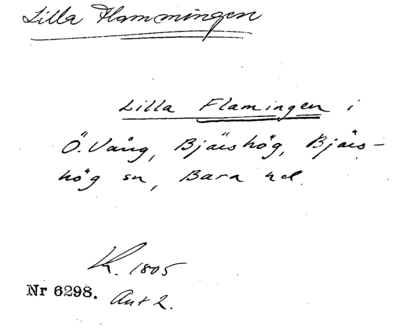 Lilla Flammingen
Lilla Flamingen i
Ö. Vång, Bjärshög, Bjärs-
hög sn, Bara hd.
K. 1805
Nr 6298. Ant 2.